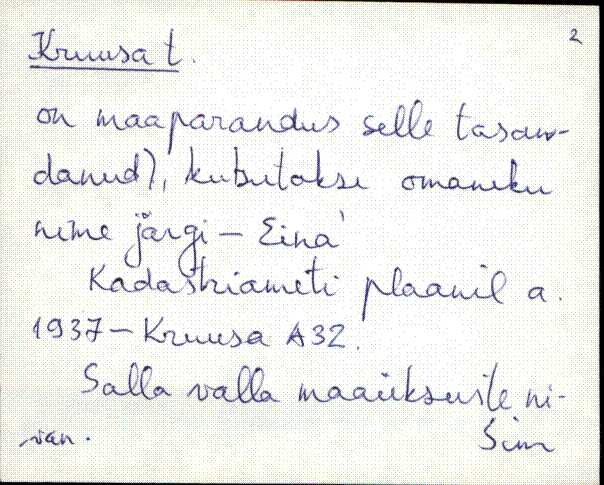 2
Kruusa t.
on maaparandus selle tasan-
danud), kutsutakse omaniku
nime järgi – Eina'
Kadastriameti plaanil a.
1937 – Kruusa A32.
Salla valla maaüksuste ni-
Sim